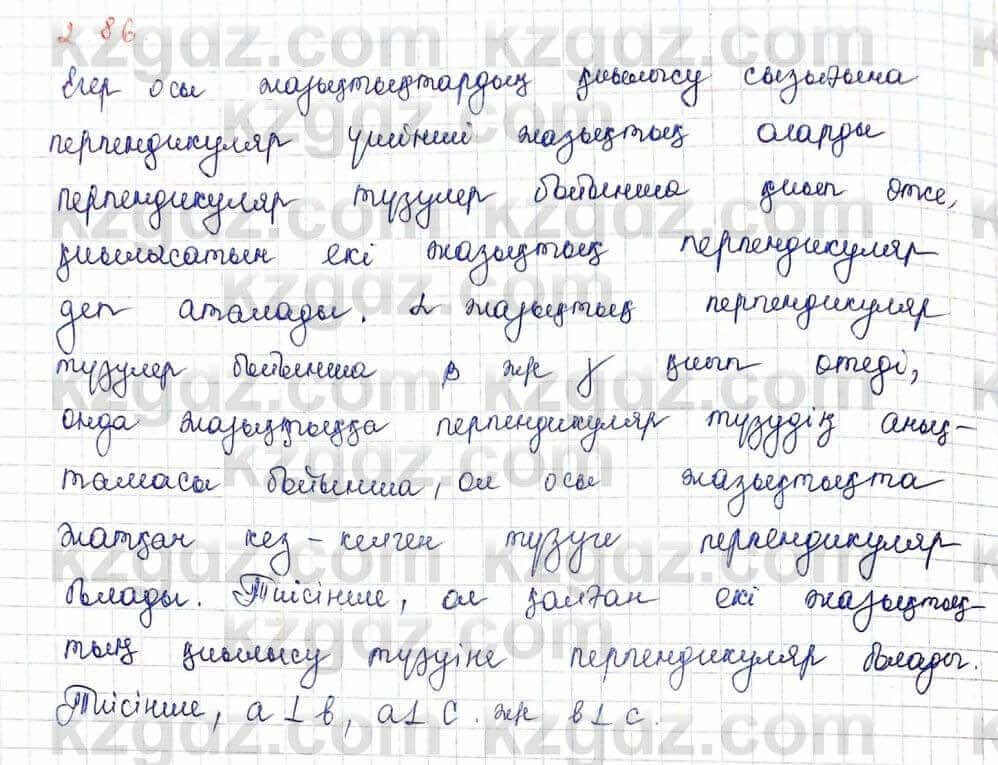 2 86
Егер осы жазықтықтардың қиылысу сызығына
перпендикуляр үшінші жазықтық оларды
перпендикуляр түзулер бойынша қиып өтсе,
қиылысатын екі жазықтық перпендикуляр
деп аталады. α жазықтық перпендикуляр
түзулер бойынша β же γ қиып өтеді,
онда жазықтыққа перпендикуляр түзудің анық-
тамасы бойынша, ол осы жазықтықта
жатқан кез-келген түзуге перпендикуляр
болады. Тиісінше, ол қалған екі жазықтық-
тың қиылысу түзуіне перпендикуляр болады.
Тиісінше, a⊥b, a⊥c. же b⊥c.
kzgdz.com